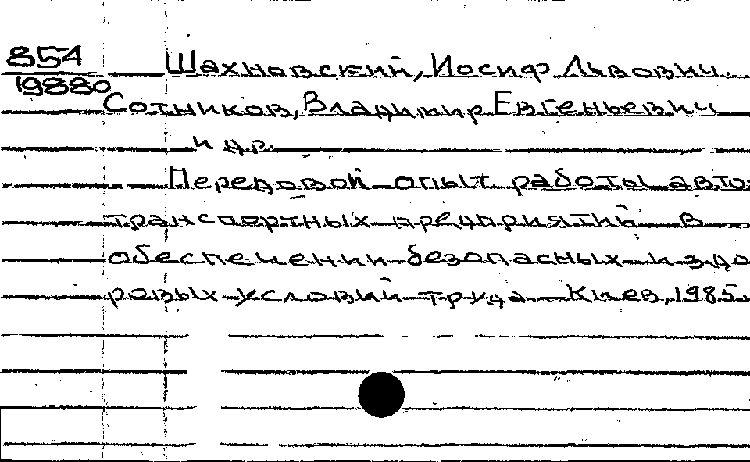 854
19880
Шахновский, Иосиф Львович
Сотников, Владимир Евгеньевич
и др.
Передовой опыт работы авто-
транспортных предприятий в
обеспечении безопасных и здо-
ровых условий труда Киев, 1985